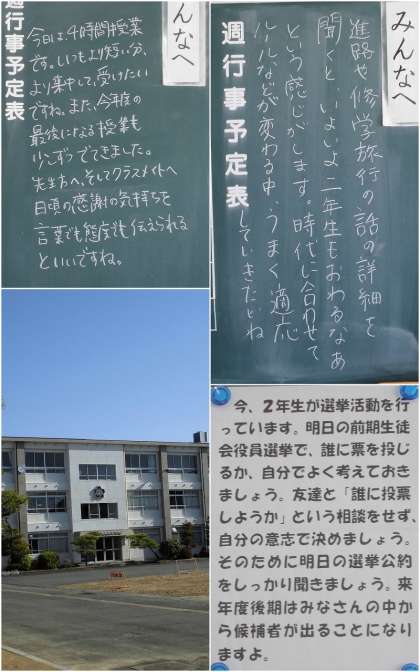 んなへ
週行事予定表
今日は、4時間授業
です。いつもより短い分、
より集中して、受けたい
ですね。また、今年度の
最後になる授業も
少しずつでてきました。
先生方へ、そしてクラスメイトへ
日頃の感謝の気持ちを
言葉でも態度でも伝えられる
といいですね。
みんなへ
進路や修学旅行の話の詳細を
聞くと、いよいよ二年生もおわるなあ
という感じがします。時代に合わせて
ルールなどが変わる中、うまく適応
していきたいね
週行事予定表
今、2年生が選挙活動を行
っています。明日の前期生徒
会役員選挙で、誰に票を投じ
るか、自分でよく考えておき
ましょう。友達と「誰に投票
しようか」という相談をせず、
自分の意志で決めましょう。
そのために明日の選挙公約
をしっかり聞きましょう。来
年度後期はみなさんの中か
ら候補者が出ることになり
ますよ。